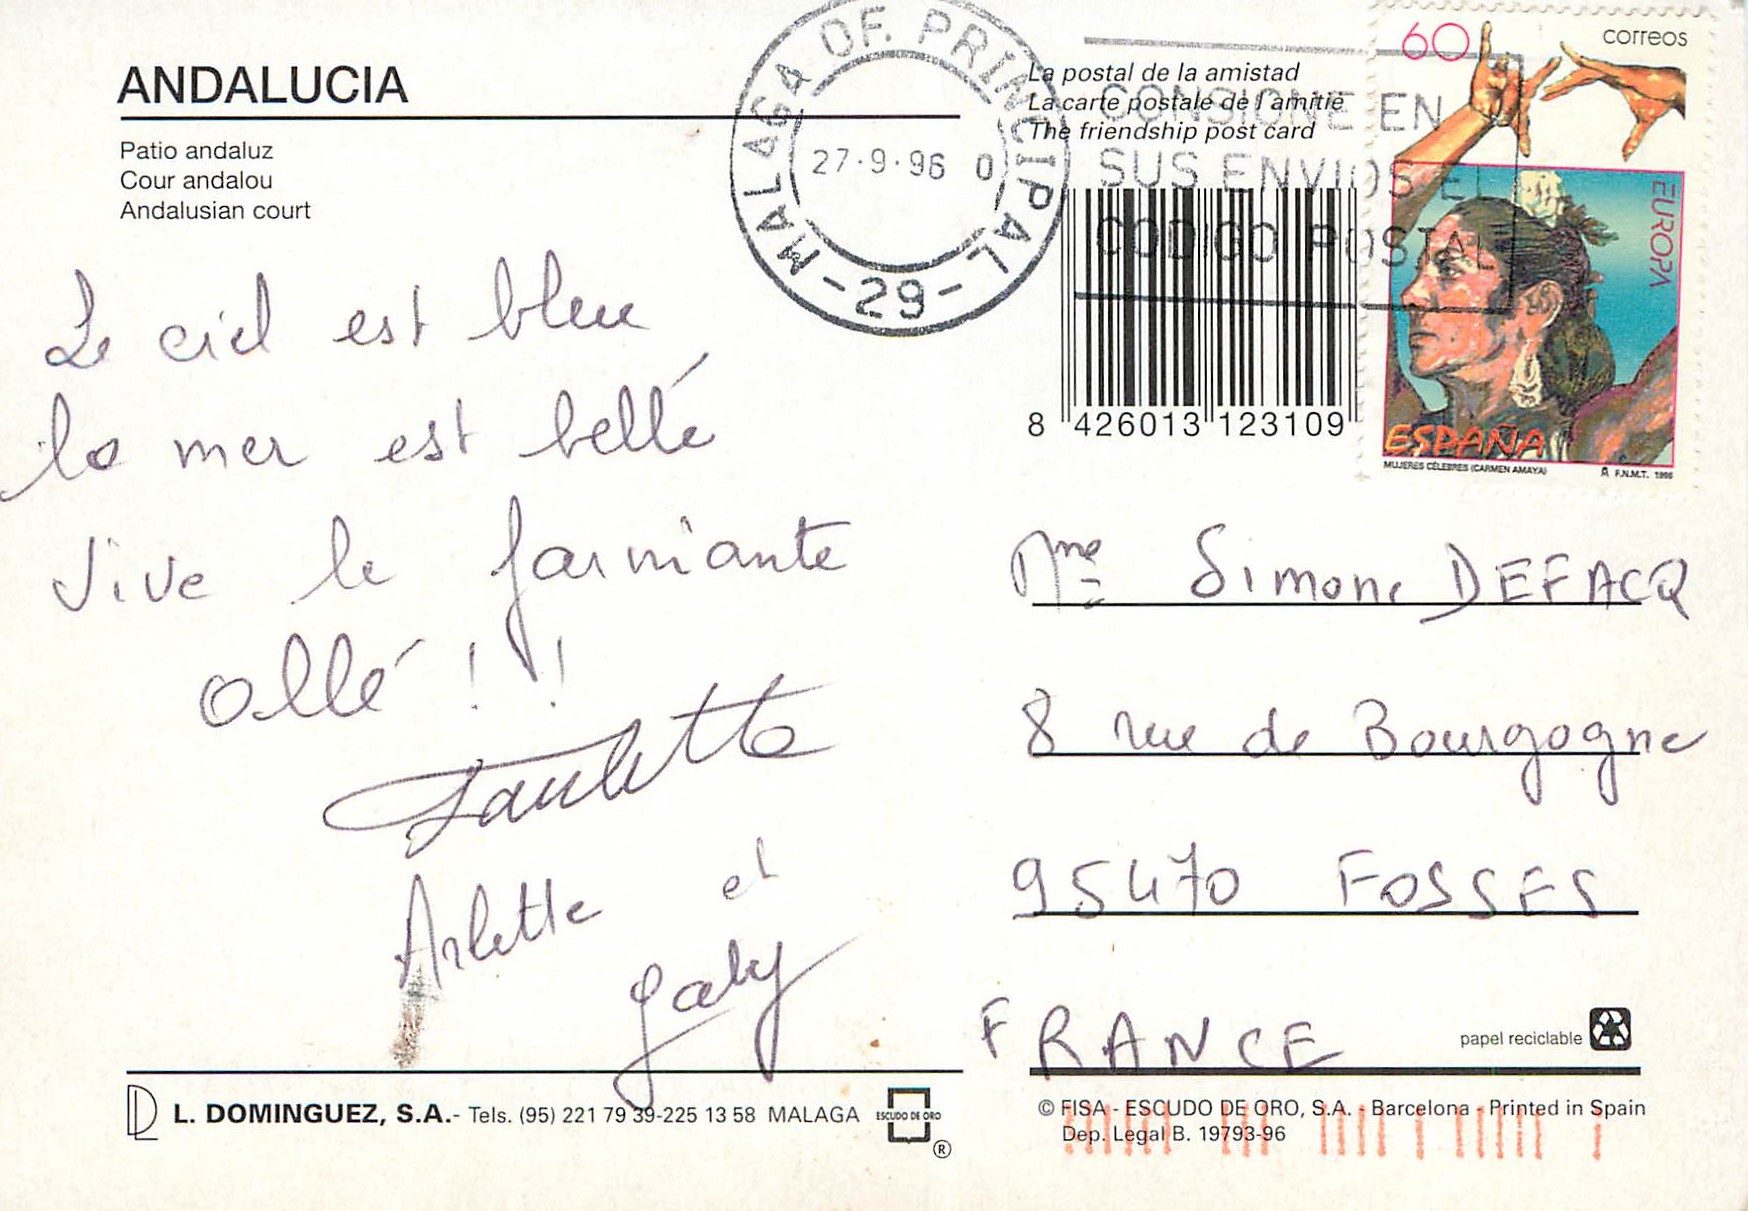 ANDALUCIA
Patio andaluz
Cour andalou
Andalusian court
MALAGA OF. PRINCIPAL
27·9·96 0
- 29 -
La postal de la amistad
La carte postale de l'amitie
The friendship post card
CONSIGNE EN
SUS ENVIOS EL
CODIGO POSTAL
60 correos
EUROPA
ESPAÑA
MUJERES CÉLEBRES (CARMEN AMAYA) F.N.M.T. 1996
8 426013 123109
Le ciel est bleu
la mer est bellé
Vive le farniante
ollé ! !
Paulette
Arlette et
Gaby
Mme Simone DEFACQ
8 rue de Bourgogne
95470 FOSSES
FRANCE
papel reciclable
L. DOMINGUEZ, S.A.- Tels. (95) 221 79 39-225 13 58 MALAGA
ESCUDO DE ORO
®
© FISA - ESCUDO DE ORO, S.A. - Barcelona - Printed in Spain
Dep. Legal B. 19793-96